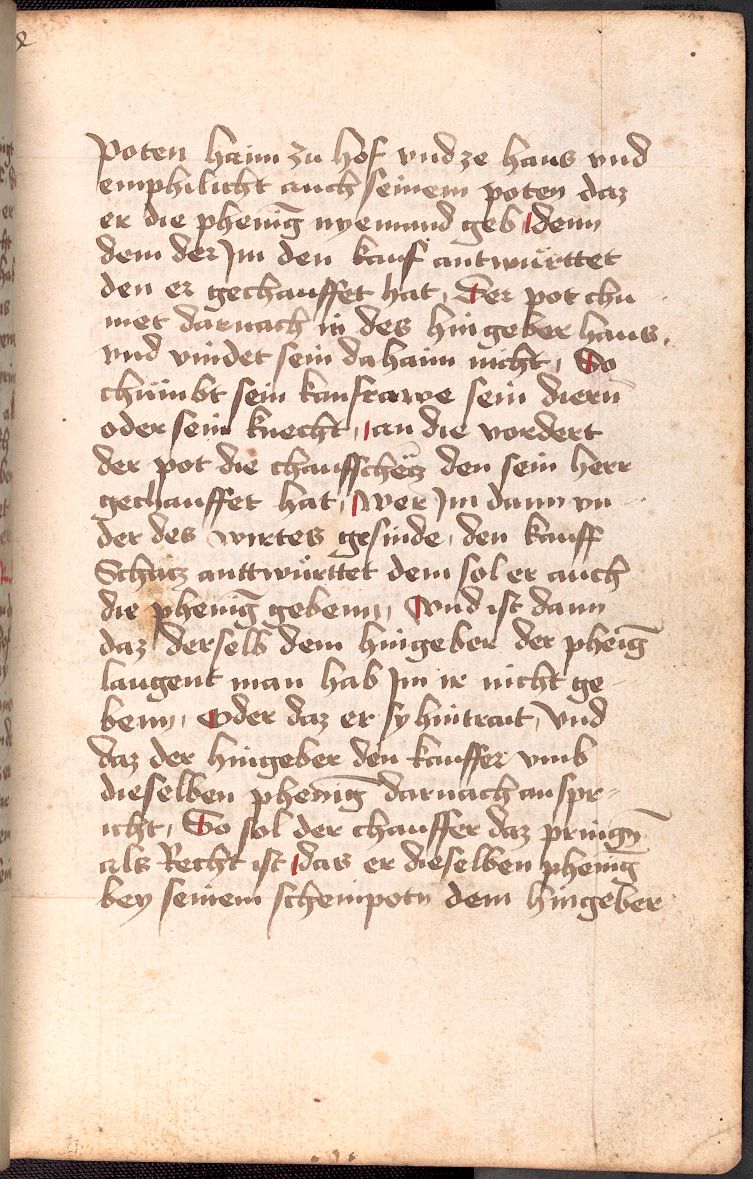 poten haim zu hof vnd ze haus vnd
emphilicht auch seinem poten daz
er die phenig̅ nyemand geb denn
dem der Im den kauf antwürttet
den er gechauffet hat, Der pot chu
met darnach in des hingeber haus,
vnd vindet sein dahaim nicht, So
chümbt sein kanfrawe sein diern̅
oder sein knecht, an die vordert
der pot die chauffschëtz den sein herr
gechauffet hat, Wer Im dann vn
der des wirtes gesinde, den kauff
Schatz anttwürttet dem sol er auch
die phenig̅ gebenn, Vnd ist dann
daz derselb dem hingeber der pheig̅
laugent man hab Im ir nicht ge
benn, Oder daz er sy hintrait, Vnd
daz der hingeber den kauffer vmb
dieselben phenig̅ darnach an spr
icht, So sol der chauffer daz pringn̅
als Recht ist das er dieselben phenig̅
bey seinem scheinpotn dem hingeber